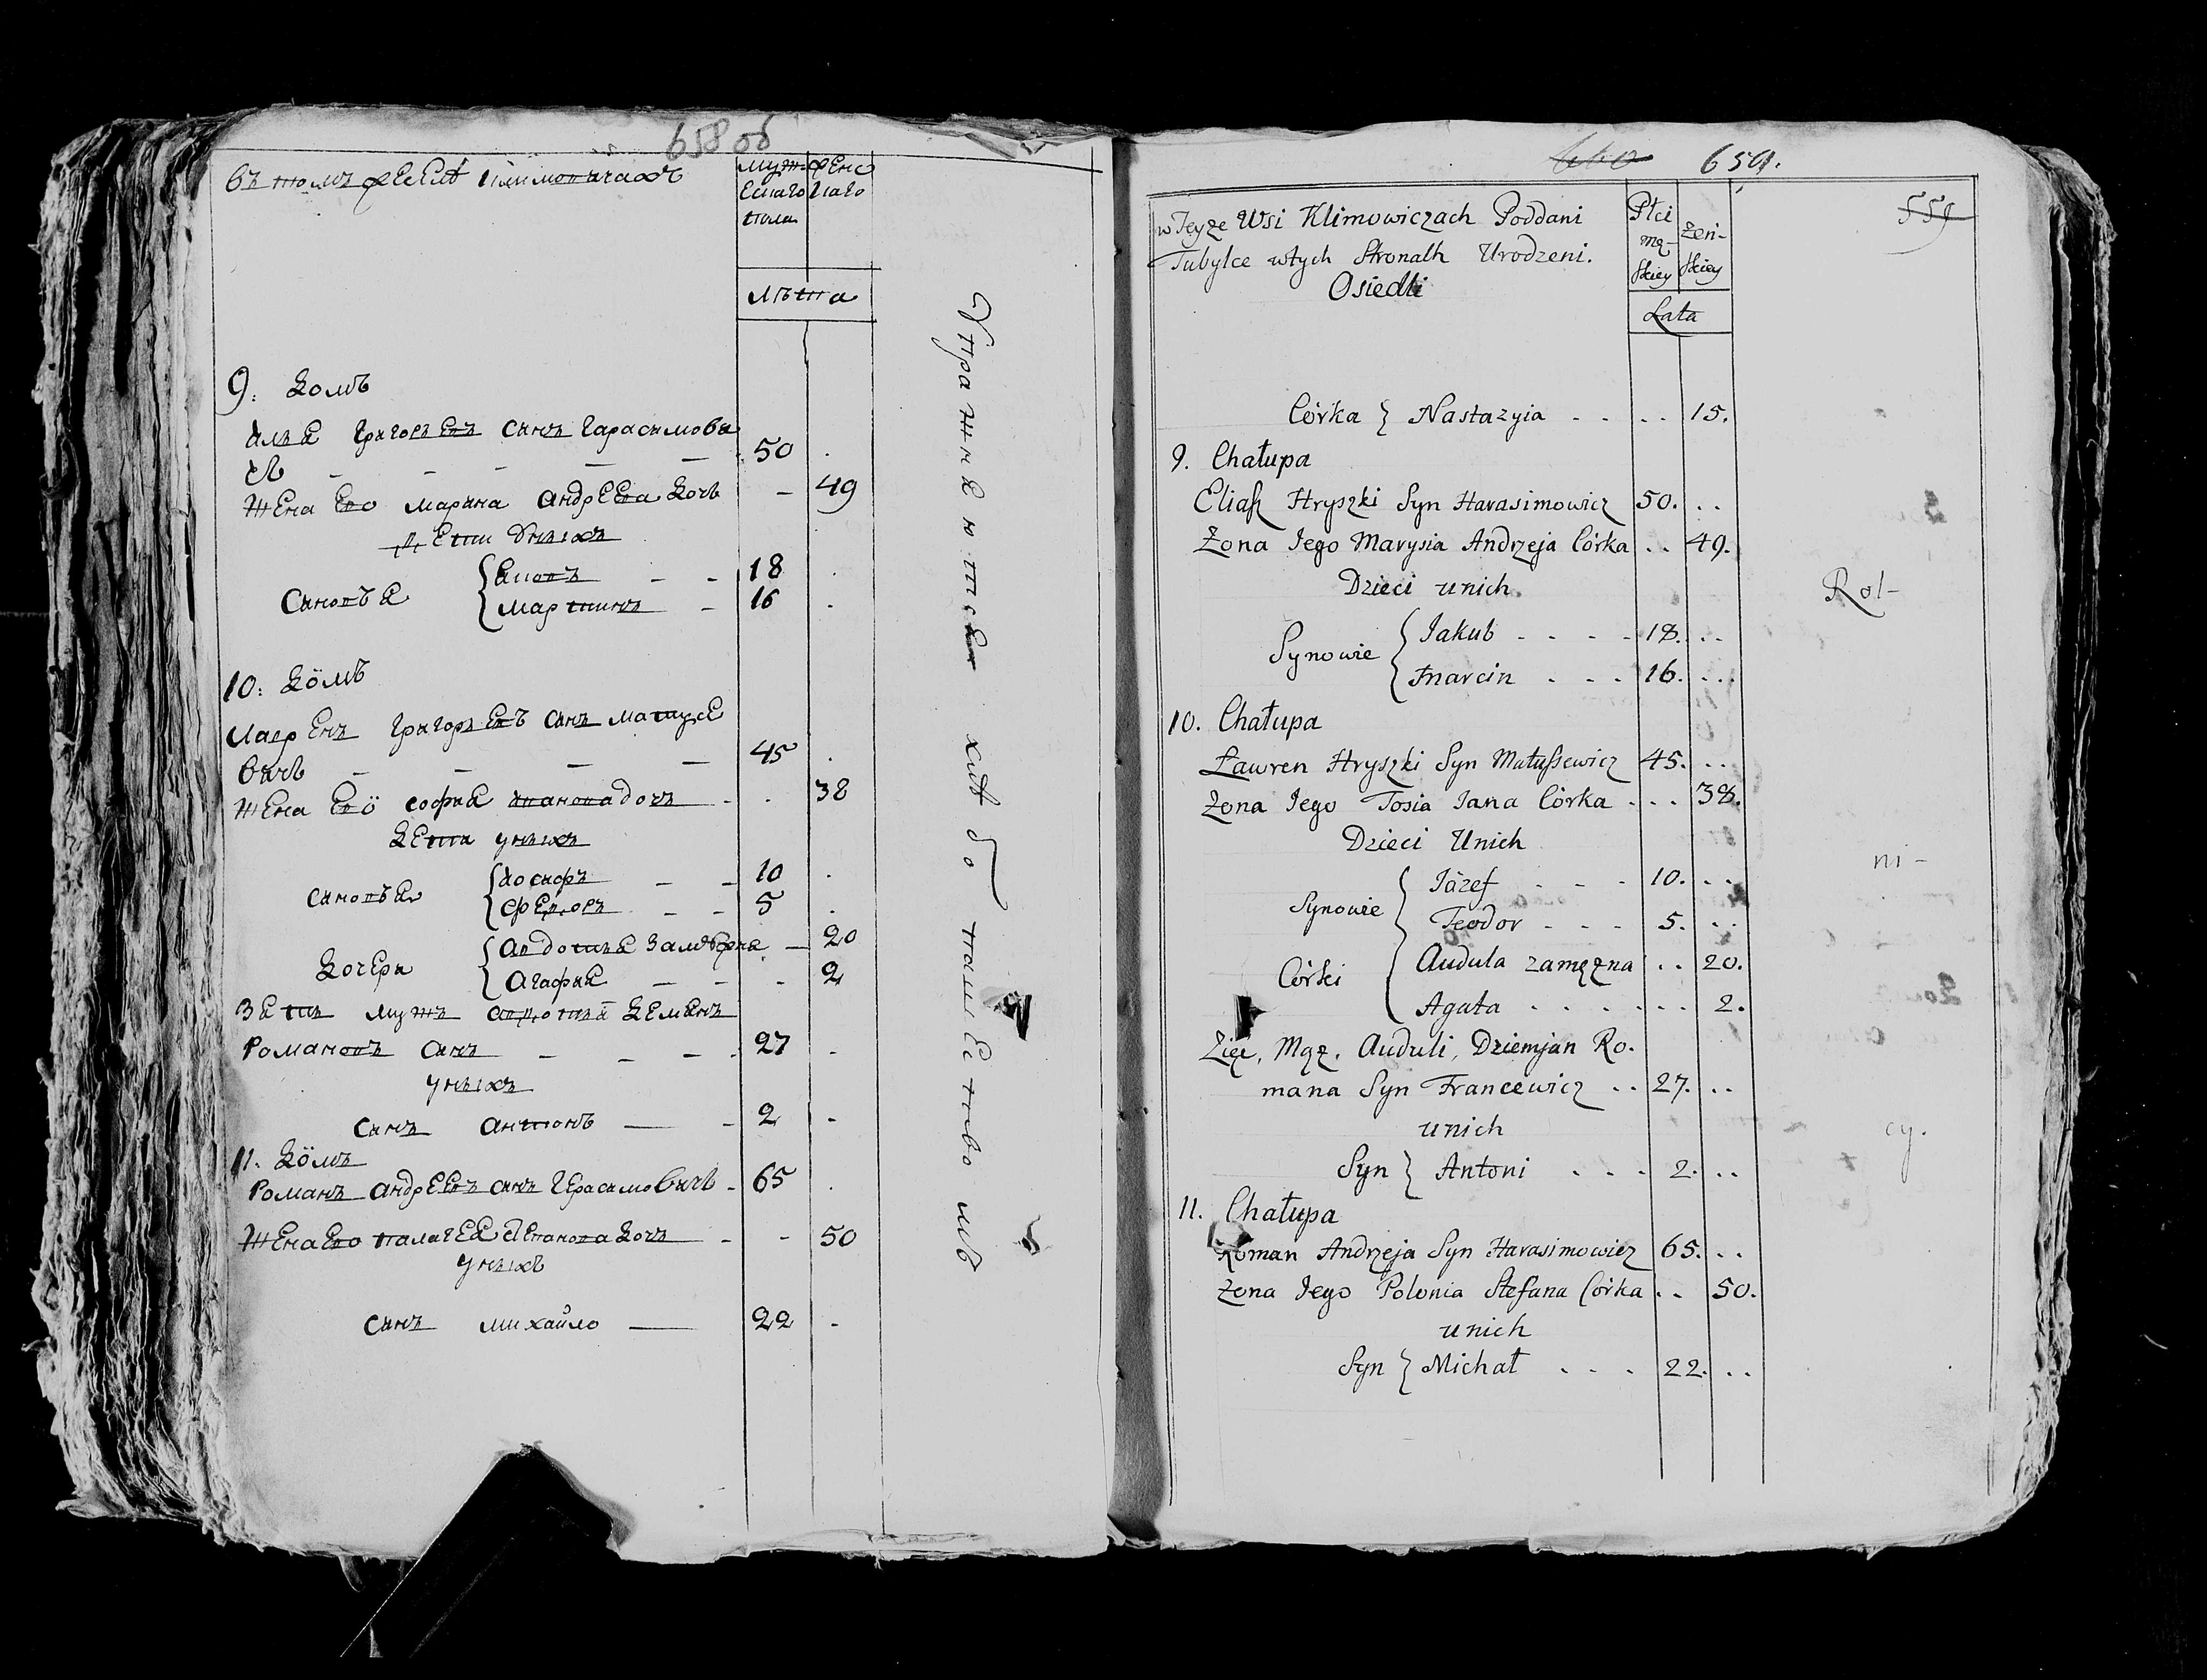 658 об
въ томъ же селѣ климовичахъ
муж женс
ескаго каго
пола
лѣта
9: Домъ
илья григорьевъ синъ гарасимови
чъ - - - - - 50 .
жена ево марина андреева дочь - 49
дети унихъ
синовья { яковъ - - 18 .
мартинъ - 16 .
10: Домъ
лаврѣнъ григорьевъ синъ матусе
вичъ - - - - 45 .
жена ево софия иванова дочъ - . 38
дети унихъ
синовья { иосифъ - - 10 .
феѡдоръ - - 5 .
дочери { авдотья замужня - 20
агафия - - - 2
зять мужъ авдотьи демянъ
романовъ синъ - - - 27 .
унихъ
синъ антонъ - - 2 -
11. Домъ
романъ андреевъ синъ герасимовичъ - 65 .
жена ево палагея степанова дочъ - - 50
унихъ
синъ михайло - 22 -
Упражняются хлѣбопашествомъ
660 659.
559
w Teyże Wsi Klimowiczach Poddani
Tubylce wtych Stronach Urodzeni.
Osiedli
Płci
mę- żeń-
skiey skiey
Lata
Córka } Nastazyia - - . . 15.
9. Chałupa
Eliasz Hryszki Syn Harasimowicz 50. . .
Żona Jego Marysia Andrzeja Córka . . 49.
Dzieci unich.
Synowie { Jakub - - - - 18. . .
Marcin - - - 16. . .
10. Chałupa
Ławren Hryszki Syn Matussewicz 45. . .
Żona Jego Zosia Jana Córka . . . 38.
Dzieci Unich
Synowie { Józef - - - 10. . .
Teodor - - - 5. . .
Córki { Audula zamężna . . 20.
Agata . . . . . . . 2.
Zięć, Mąż, Auduli, Dziemjan Ro.
mana Syn Francewicz . . 27. . .
unich
Syn } Antoni - - - 2. . .
11. Chałupa
Roman Andrzeja Syn Harasimowicz 65. . .
Żona Jego Polonia Stefana Córka . . 50.
unich
Syn } Michał - - - 22. . .
Rol-
ni-
cy.